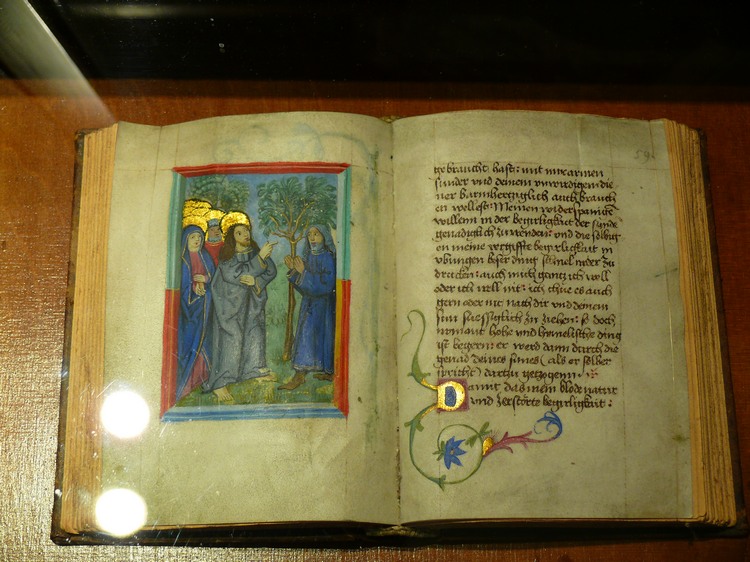 59
gebraucht hast: mit mir armen
sunder vnd deinem vnwirdigem die
ner barmhertziglich auch brauch
en wollest: Meinen widerspanige
willenn in der begirligkeit der sunde
genadiglich zuwenden: vnd die selbig
en meine vergiffte begirligkait in
vbungen beser ding senel mder zu
drucken: auch mich gantz ich woll
oder ich woll nit: ich thue es auch
gern oder nit nach dir vnd deinem
sun fleissiglich zu ziehen: so doch
nymant hohe vnd himelische ding
ist begeren: er werd dann durch die
genad deines sunes (als er selber
spricht) dartzu getzogenn
Damit das mein blode natur
vnd zerstorte begirligkait: